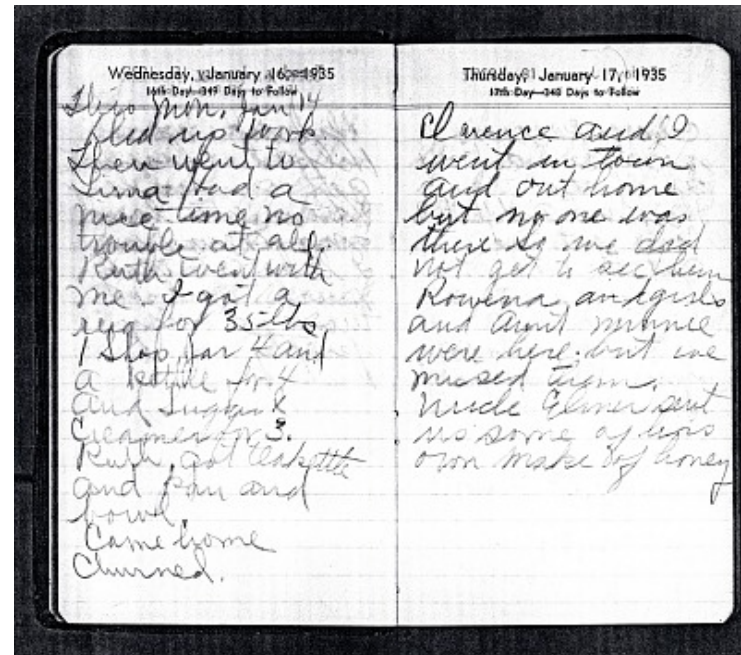 Wednesday, January 16, 1935
16th Day—349 Days to Follow
This Mon. Jan 14
up work
Then went to
Lima Had a
nice time no
trouble at all.
Ruth went with
me. I got a
rug for 35 lbs
1 for 4 and
a kettle for 4
and Sugar &
Creamer for 3.
Ruth got teakettle
and pan and
bowl.
Came home
Churned.
Thursday, January 17, 1935
17th Day—348 Days to Follow
Clarence and I
went in town
and out home
but no one was
there so we did
not get to see them
Rowena and girls
and Aunt Minnie
were here but we
missed them.
Uncle Elmer sent
us some of his
own make of honey